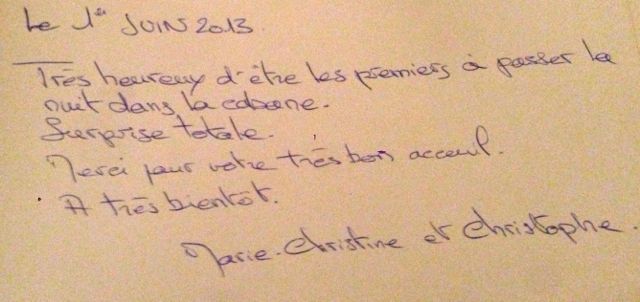 Le 1er JUIN 2013.
Très heureux d'être les premiers à passer la
nuit dans la cabane.
Surprise totale.
Merci pour votre très bon acceuil.
A très bientôt.
Marie-Christine et Christophe.